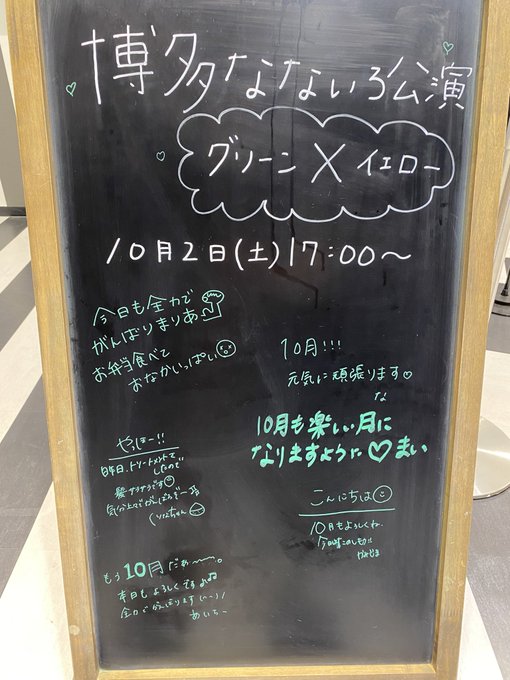 博多なないろ公演
グリーン X イエロー
10月2日(土)17:00〜
今日も全力で
がんばりまりあ
お弁当食べて
おなかいっぱい
10月!!!
元気に頑張ります♡
な
10月も楽しい月に
なりますように♡まい
やっほー!!
昨日、トリートメントを
したので
髪サラサラです
こんにちは
10月もよろしくね
もう10月だぁ〜〜。
本日もよろしくです♪♪
全力でがんばります
あいち〜